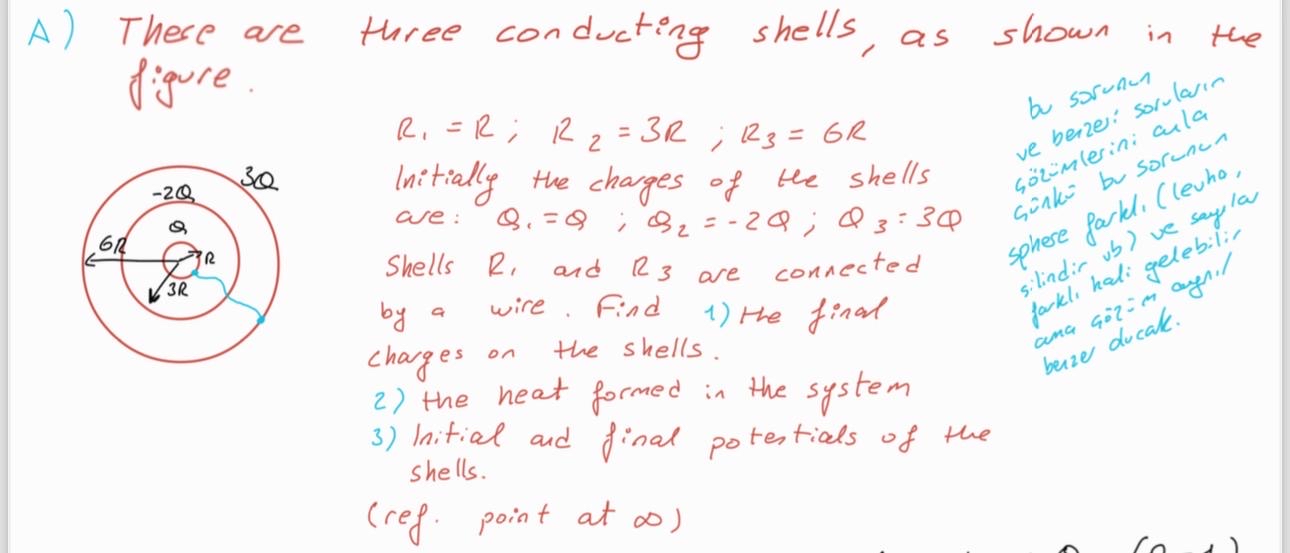 A) There are three conducting shells, as shown in the
figure.
R1 = R ; R2 = 3R ; R3 = 6R
Initially the charges of the shells
are: Q1 = Q ; Q2 = -2Q ; Q3 = 3Q
Shells R1 and R3 are connected
by a wire. Find 1) the final
charges on the shells.
2) the heat formed in the system
3) Initial and final potentials of the
shells.
(ref. point at ∞)
3Q
-2Q
Q
6R
R
3R
bu sorunun
ve benzeri soruların
çözümlerini anla
çünkü bu sorunun
sphere farklı (levha,
silindir vb) ve sayılar
farklı hali gelebilir
ama çözüm aynı/
benzer olucak.